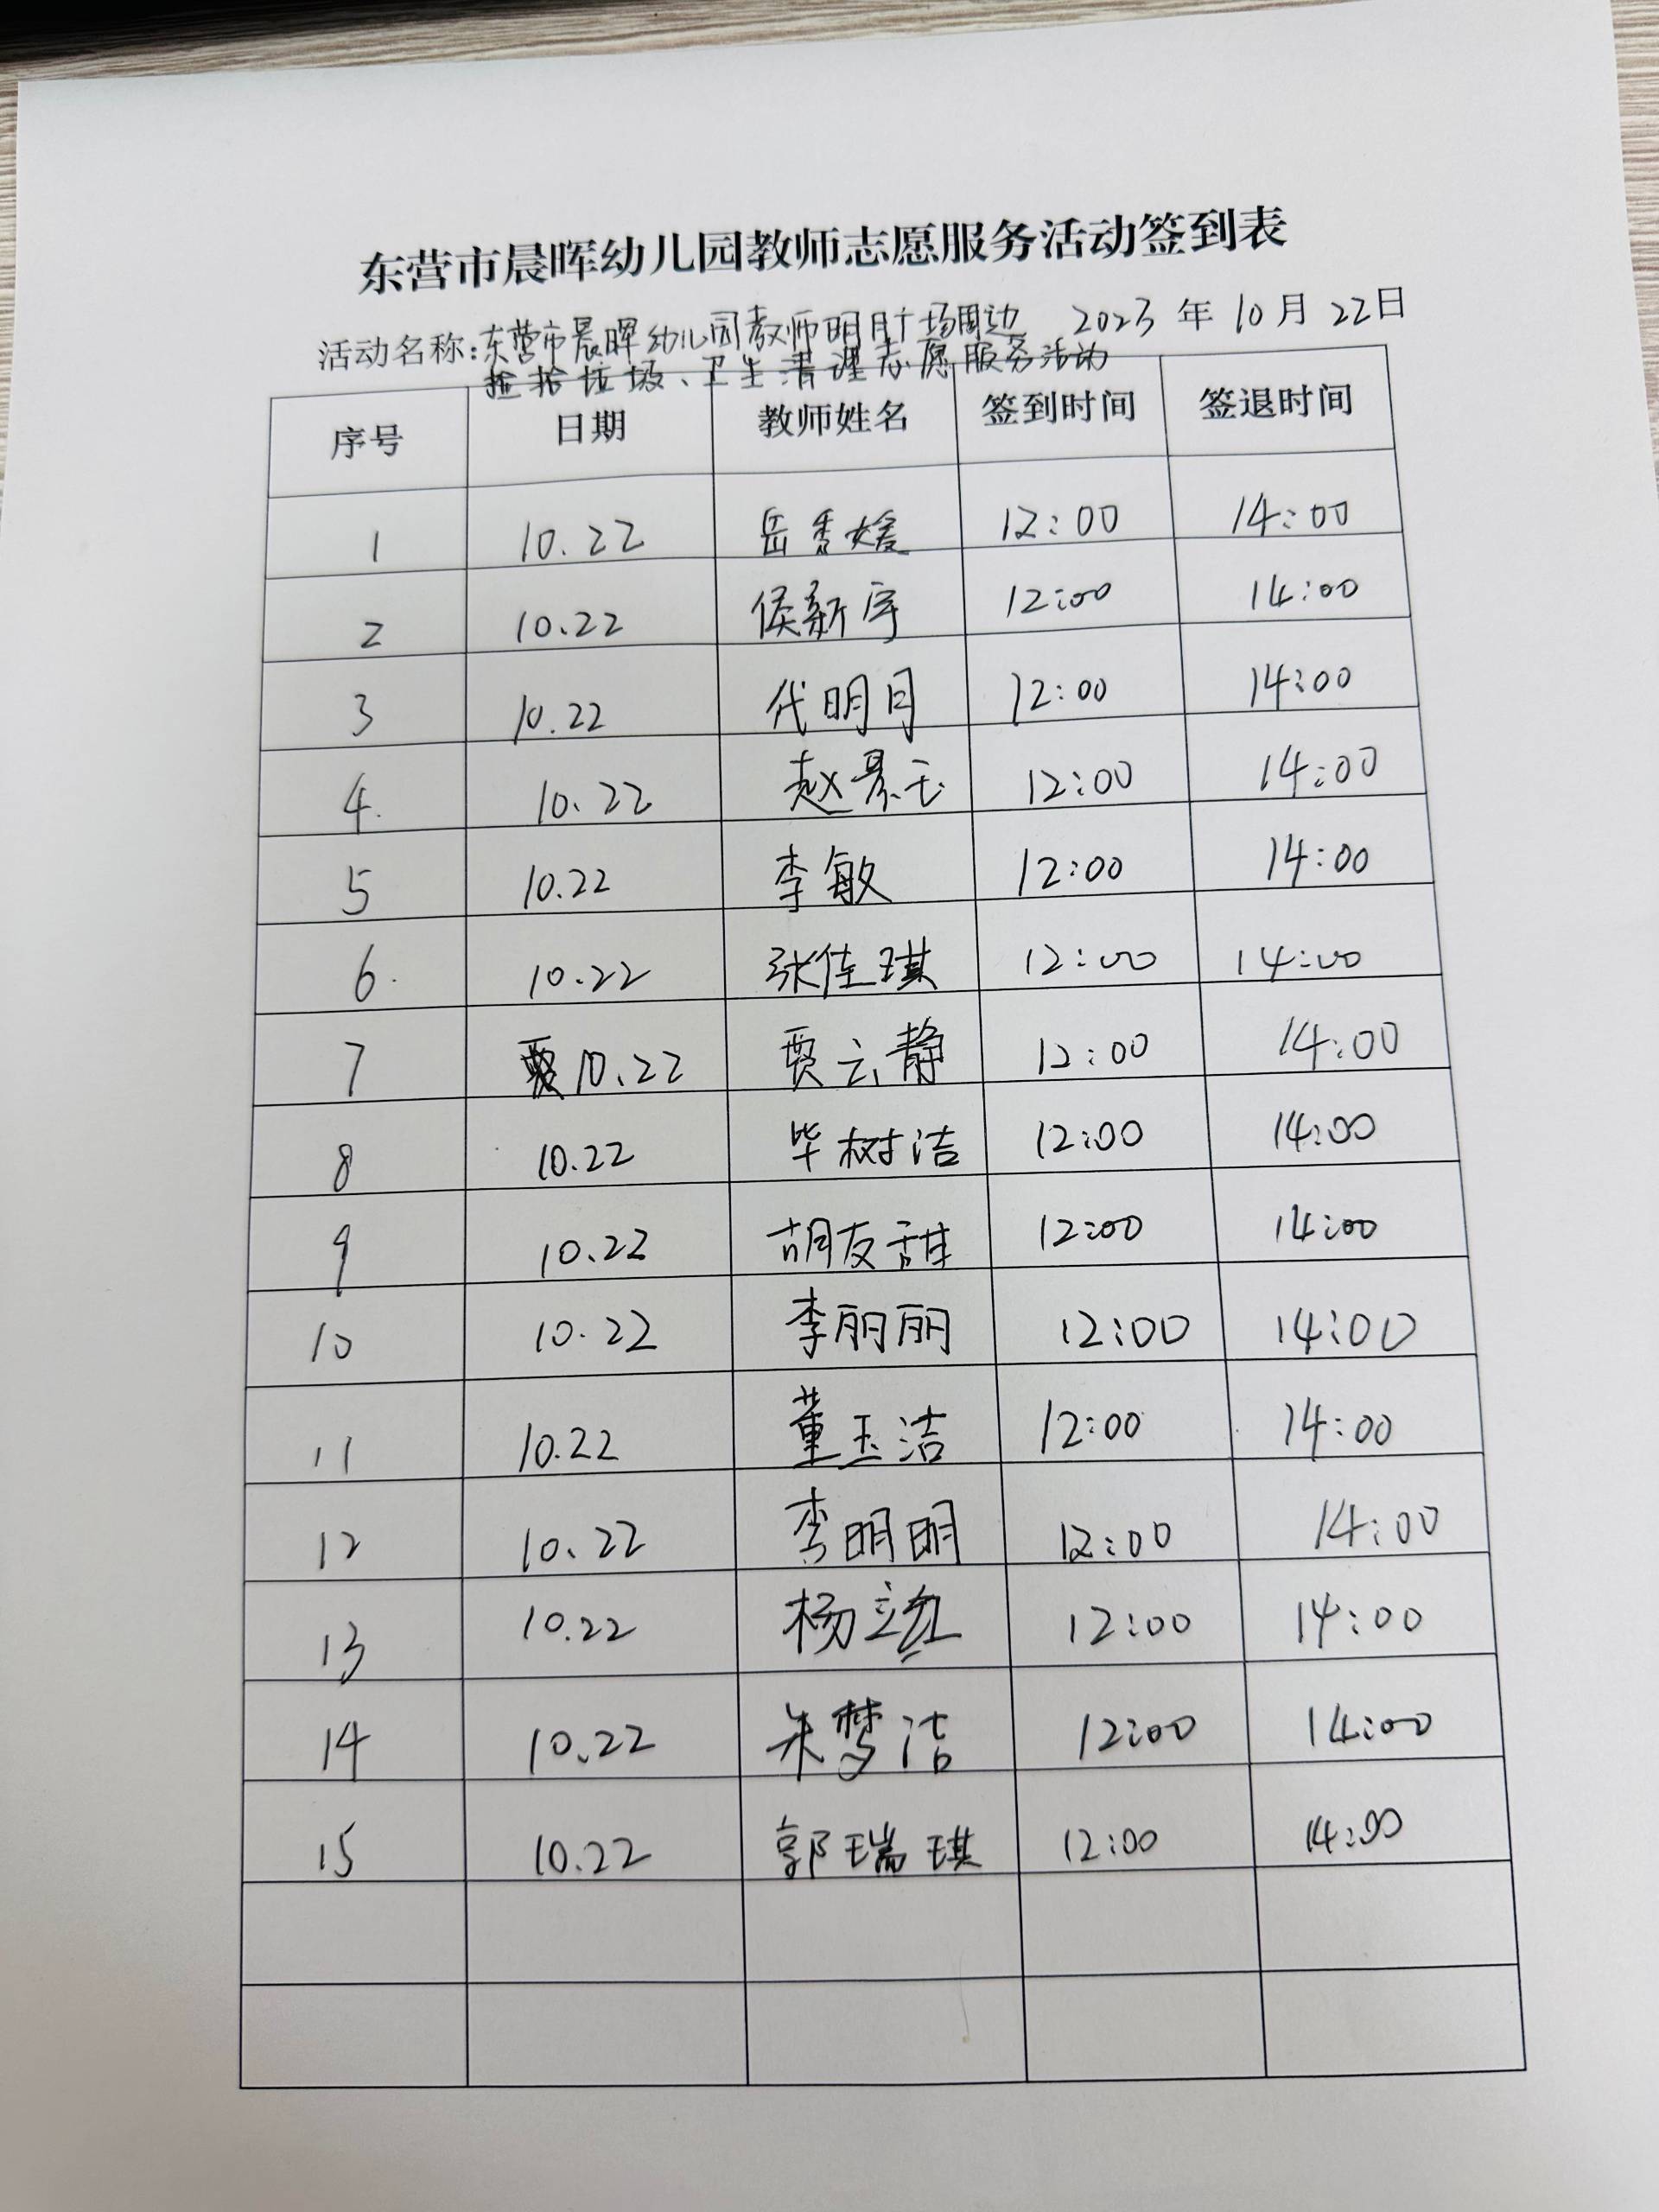 东营市晨晖幼儿园教师志愿服务活动签到表
活动名称:东营市晨晖幼儿园教师明月广场周边 2023年10月22日
捡拾垃圾、卫生清理志愿服务活动
序号 日期 教师姓名 签到时间 签退时间
1 10.22 岳秀媛 12:00 14:00
2 10.22 侯新宇 12:00 14:00
3 10.22 代明月 12:00 14:00
4. 10.22 赵景玉 12:00 14:00
5 10.22 李敏 12:00 14:00
6. 10.22 张佳琪 12:00 14:00
7 10.22 贾云静 12:00 14:00
8 10.22 毕树洁 12:00 14:00
9 10.22 胡友甜 12:00 14:00
10 10.22 李丽丽 12:00 14:00
11 10.22 董玉洁 12:00 14:00
12 10.22 李明明 12:00 14:00
13 10.22 杨立红 12:00 14:00
14 10.22 朱梦洁 12:00 14:00
15 10.22 郭瑞琪 12:00 14:00